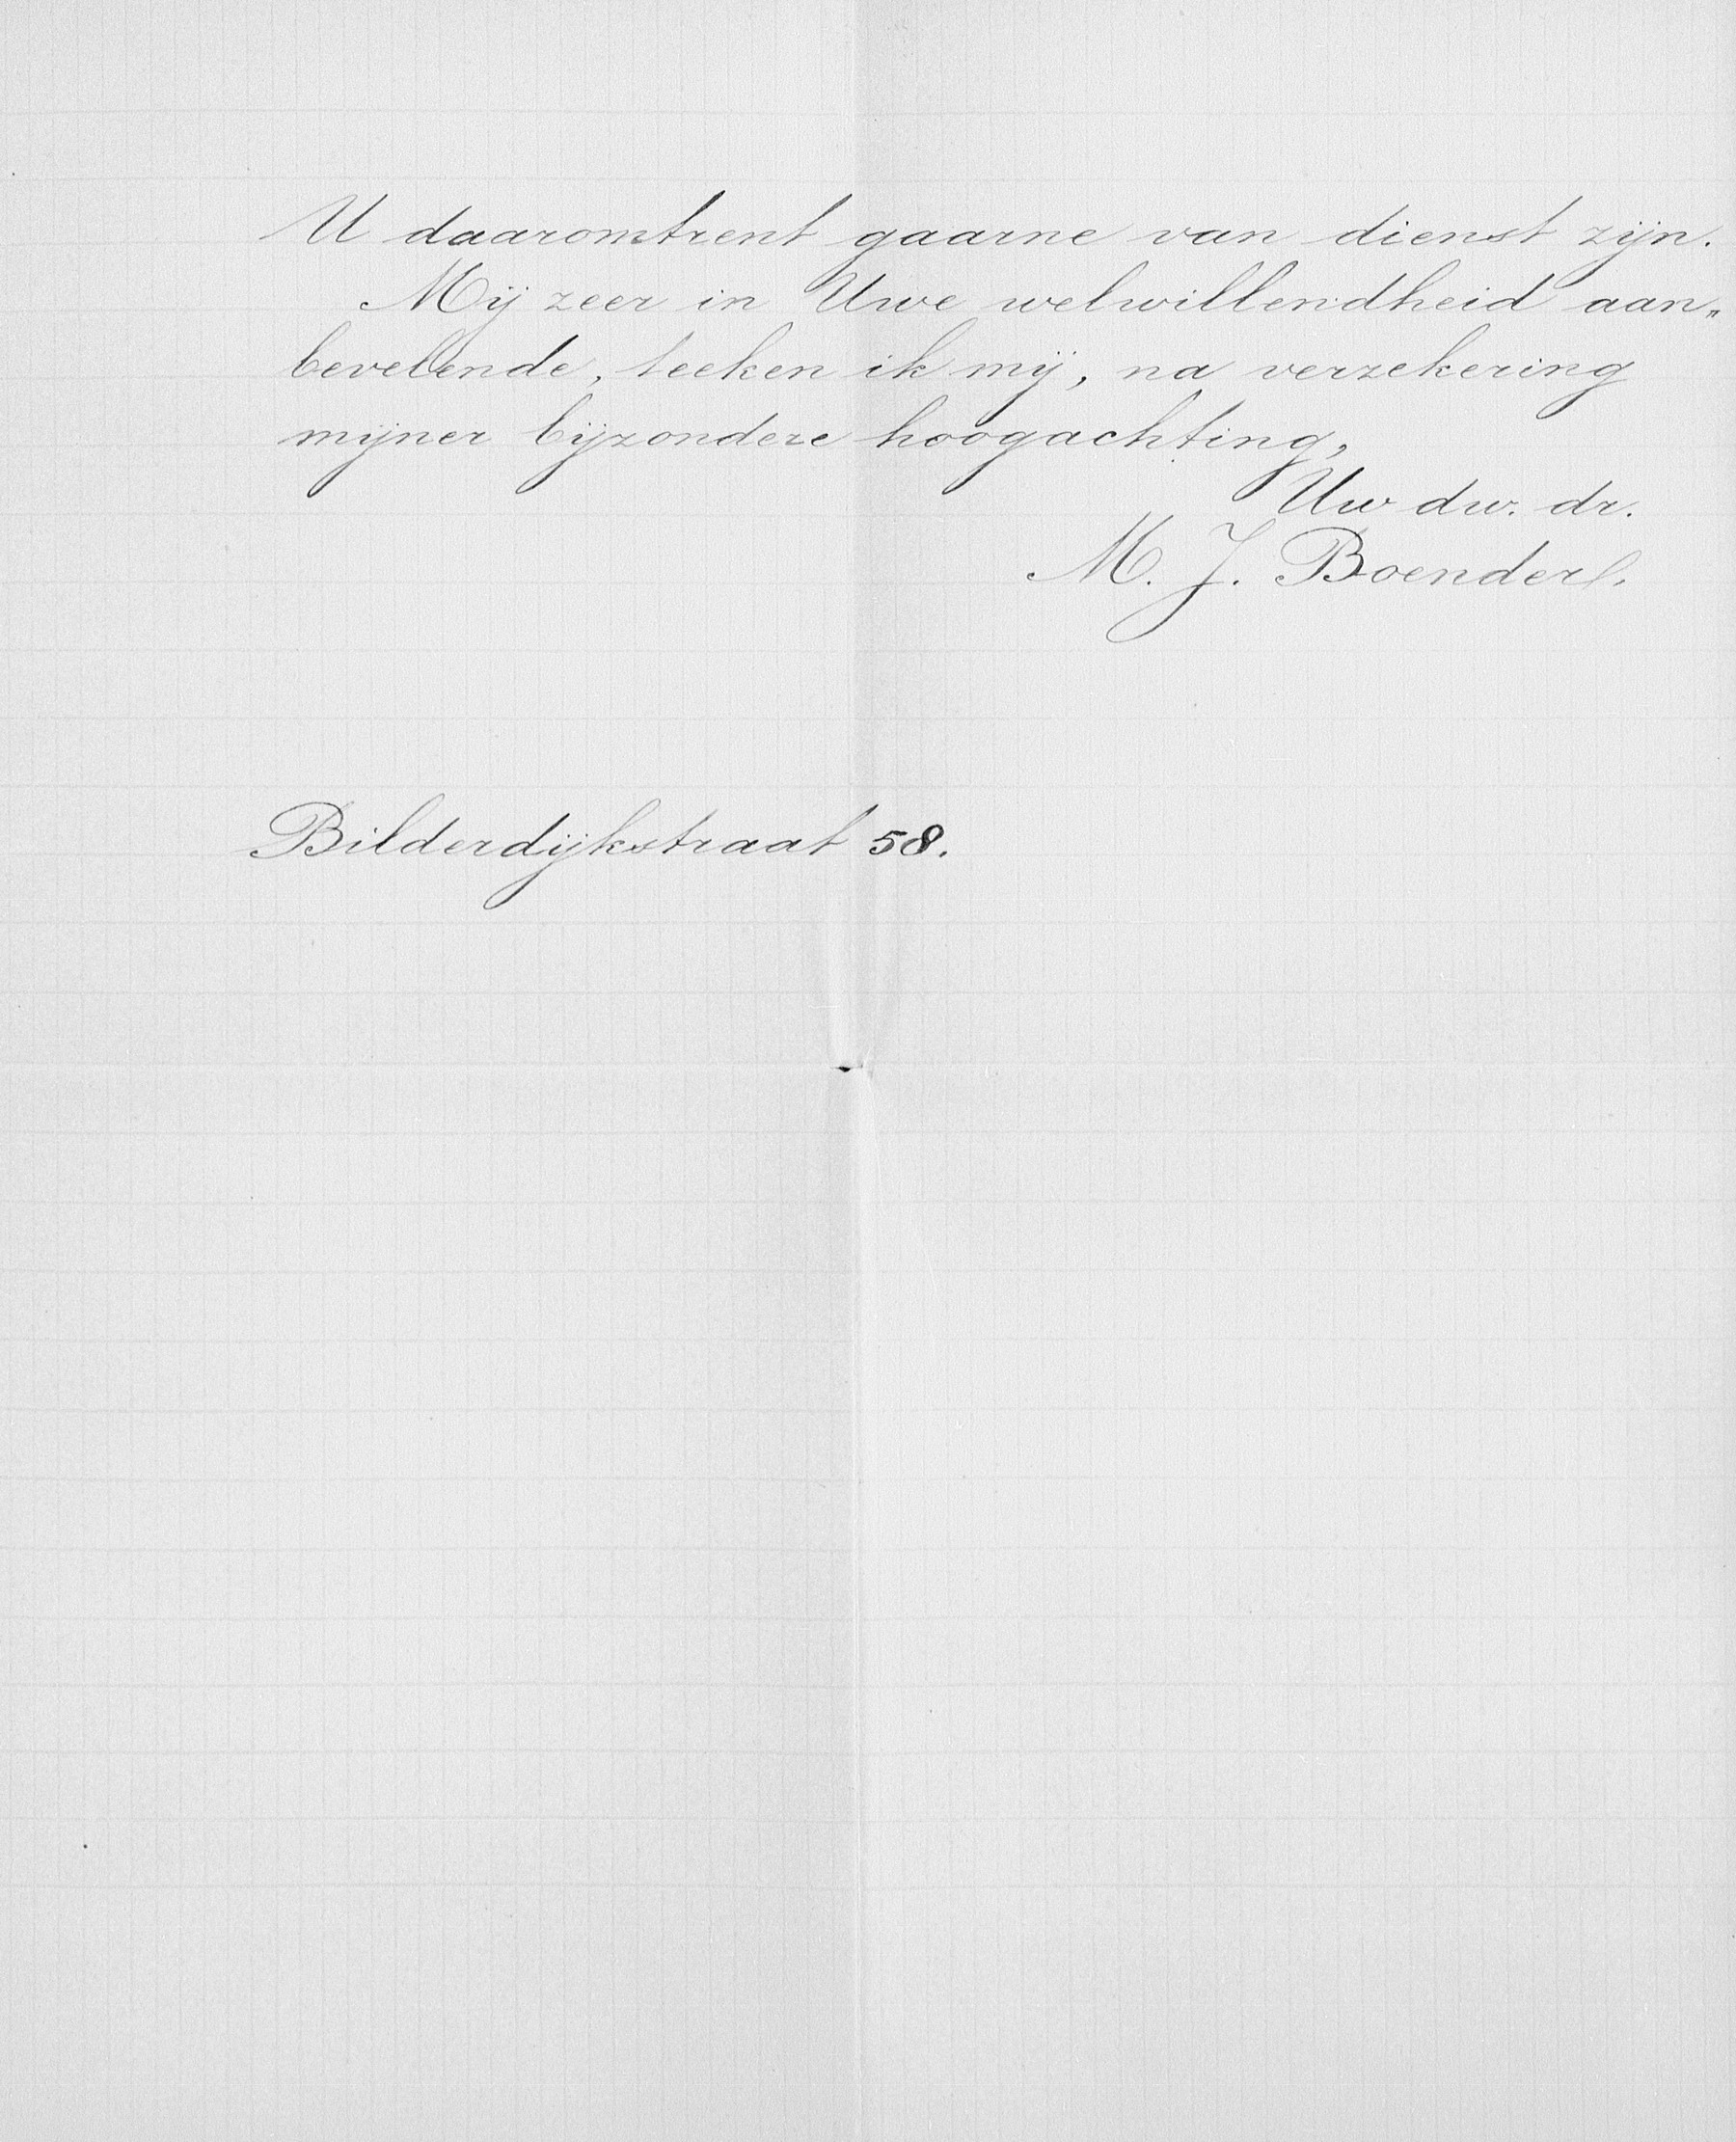 U daaromtrent gaarne van dienst zijn.
Mij zeer in Uwe welwillendheid aan„
bevelende, teeken ik mij, na verzekering
mijner bijzondere hoogachting,
Uw dw. dr.
M. J. Boender.
Bilderdijkstraat 58.